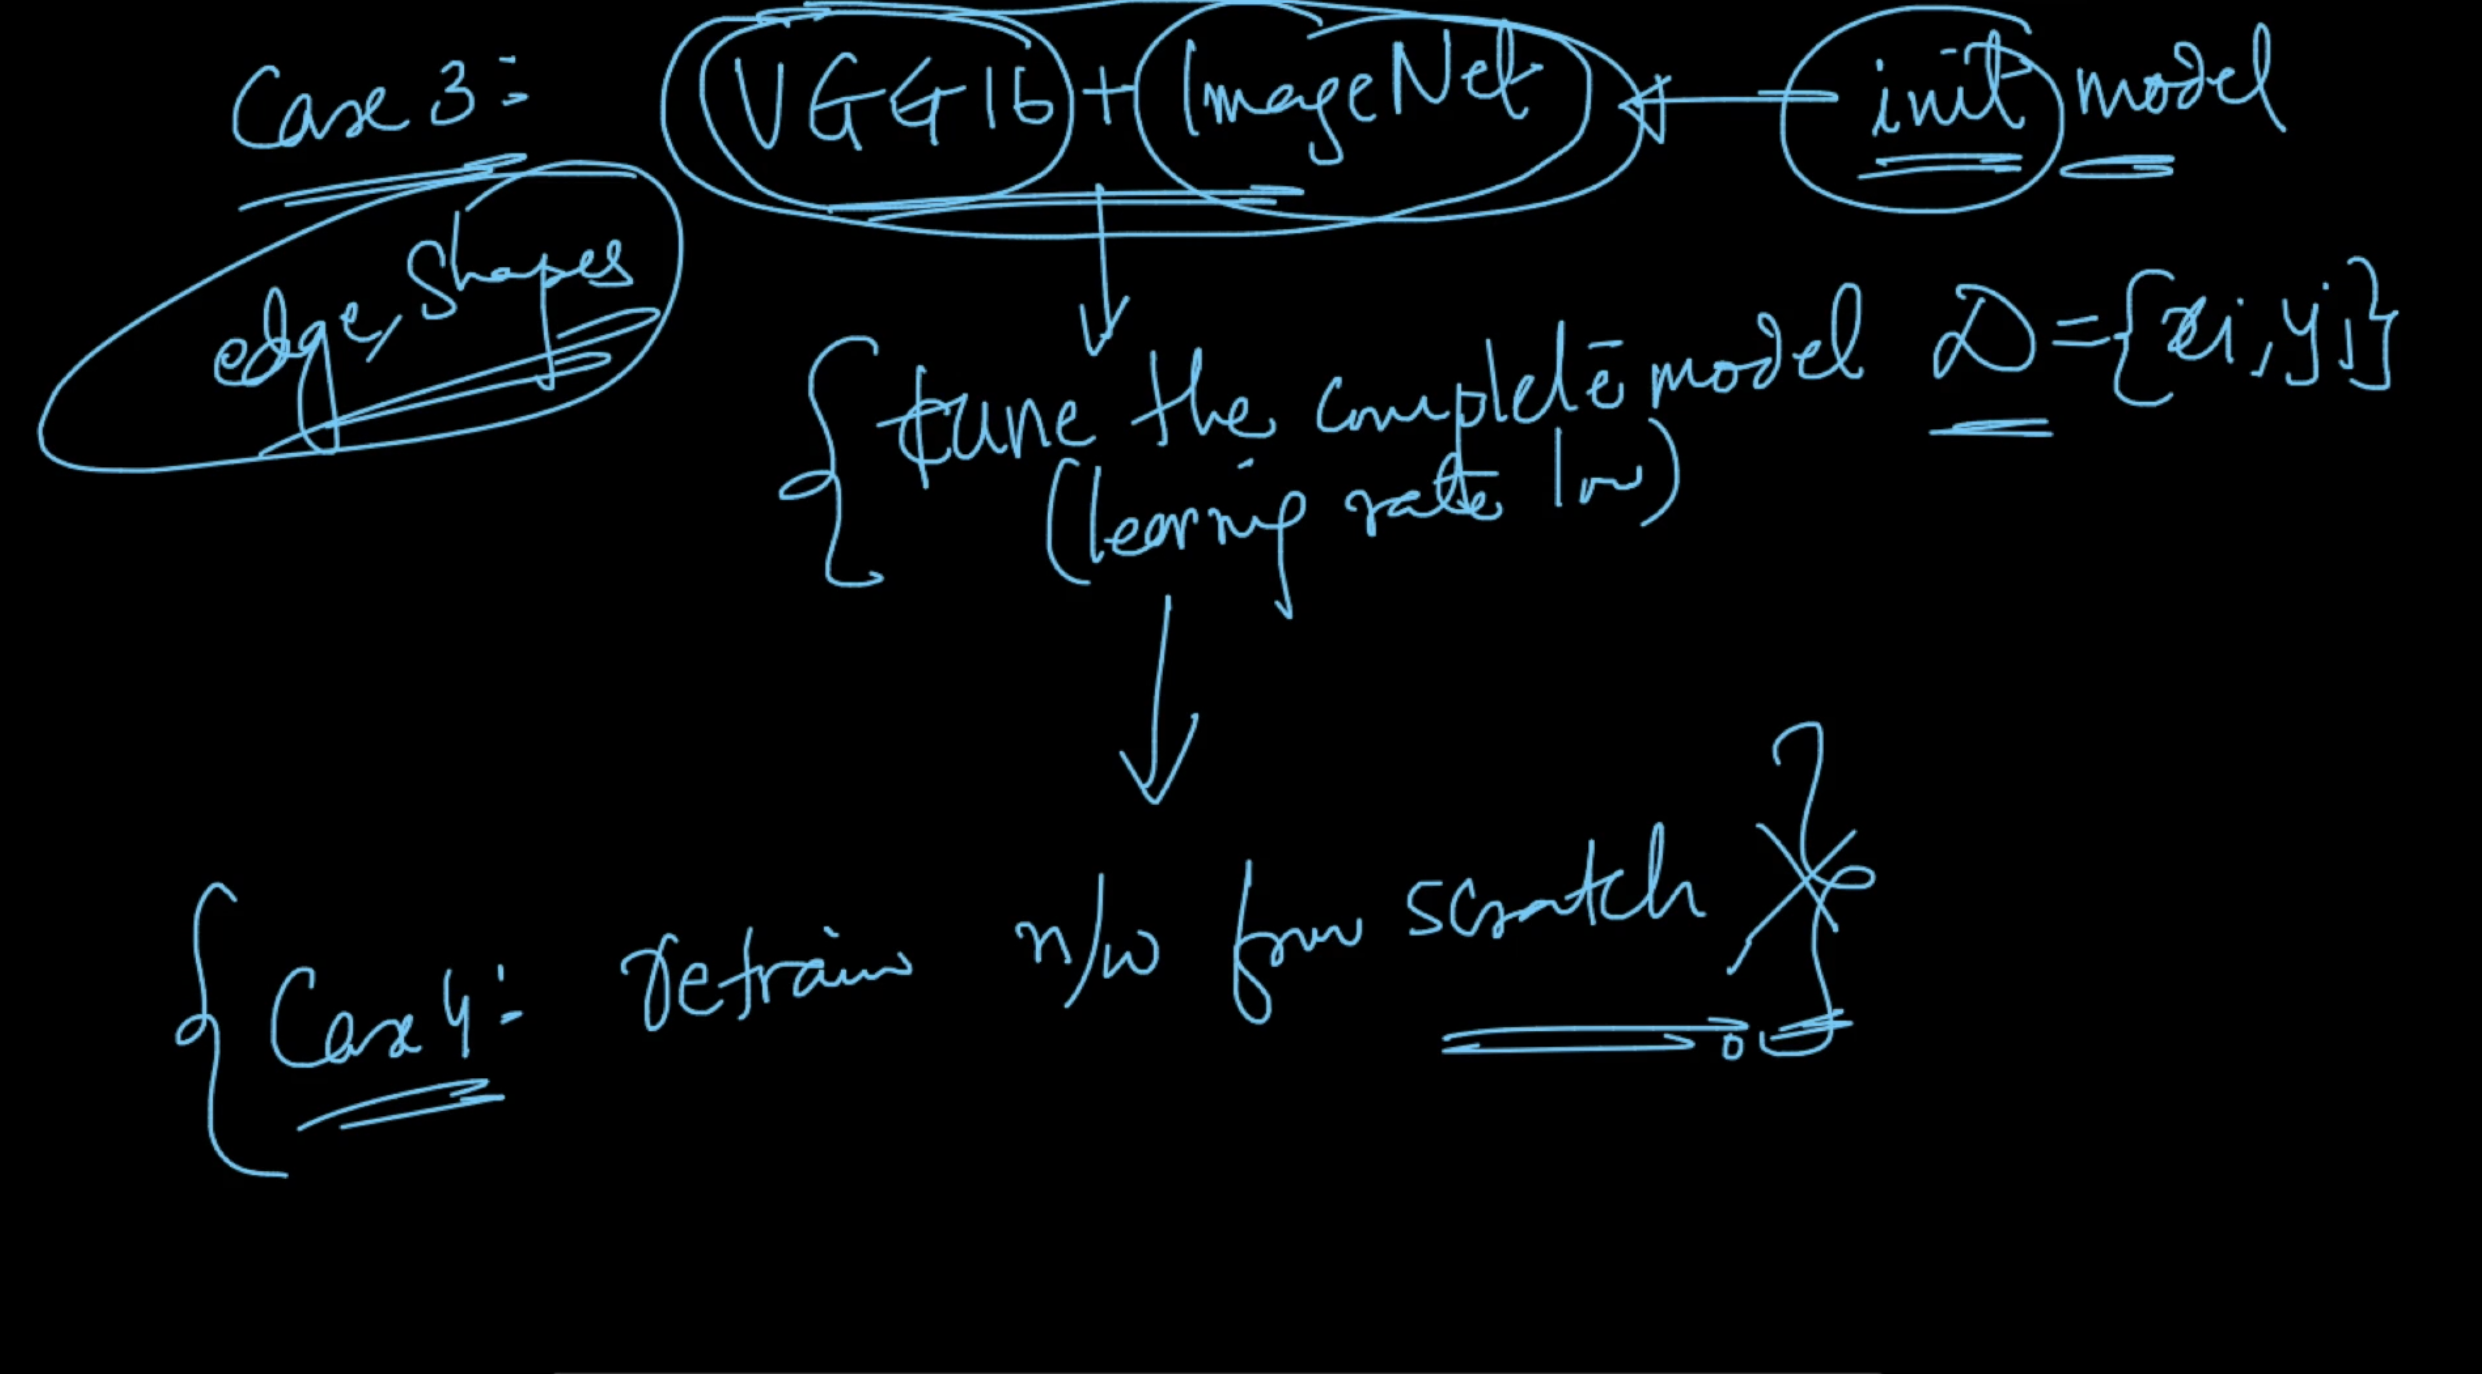 Case 3: VGG16 + ImageNet ← init model
edge, shapes
tune the complete model D = {xi, yi}
(learning rate low)
Case 4: retrain n/w from scratch